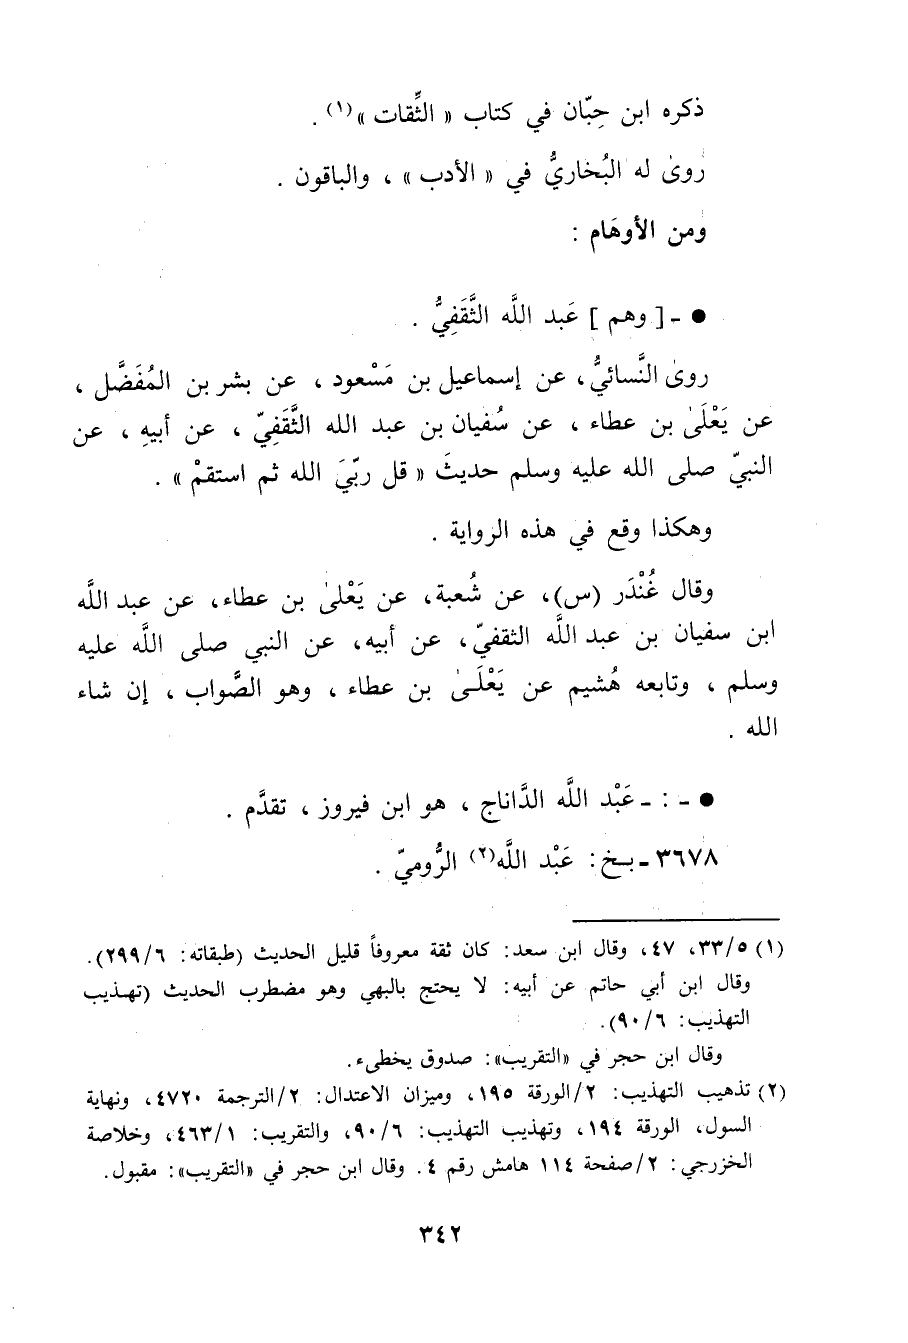 ذكره ابن حِبّان في كتاب « الثِّقات »(١) .
روىٰ له البُخاريُّ في « الأدب » ، والباقون .
ومن الأوهَام :
● ـ [ وهم ] عَبد اللَّه الثَّقَفِيُّ .
روىٰ النَّسائيُّ، عن إسماعيل بن مَسْعود ، عن بشر بن المُفَضَّل ،
عن يَعْلَىٰ بن عطاء ، عن سُفيان بن عبد الله الثَّقَفِيّ ، عن أبيهِ ، عن
النبيّ صلى الله عليه وسلم حديثَ « قل ربّيَ الله ثم استقمْ » .
وهكذا وقع في هذه الرواية .
وقال غُنْدَر (س)، عن شُعبة، عن يَعْلىٰ بن عطاء، عن عبد اللَّه
ابن سفيان بن عبد اللَّه الثقفيّ، عن أبيه، عن النبي صلى اللَّه عليه
وسلم ، وتابعه هُشيم عن يَعْلَىٰ بن عطاء ، وهو الصَّواب ، إن شاء
الله .
● ـ : ـ عَبْد اللَّه الدَّاناج ، هو ابن فيروز ، تقدَّم .
٣٦٧٨ ـ بخ : عَبْد اللَّه(٢) الرُّوميّ .
(١) ٣٣/٥، ٤٧، وقال ابن سعد: كان ثقة معروفاً قليل الحديث (طبقاته: ٢٩٩/٦).
وقال ابن أبي حاتم عن أبيه: لا يحتج بالبهي وهو مضطرب الحديث (تهذيب
التهذيب: ٩٠/٦).
وقال ابن حجر في «التقريب»: صدوق يخطىء.
(٢) تذهيب التهذيب: ٢/الورقة ١٩٥، وميزان الاعتدال: ٢/الترجمة ٤٧٢٠، ونهاية
السول، الورقة ١٩٤، وتهذيب التهذيب: ٩٠/٦، والتقريب: ٤٦٣/١، وخلاصة
الخزرجي: ٢/صفحة ١١٤ هامش رقم ٤. وقال ابن حجر في «التقريب»: مقبول.
٣٤٢